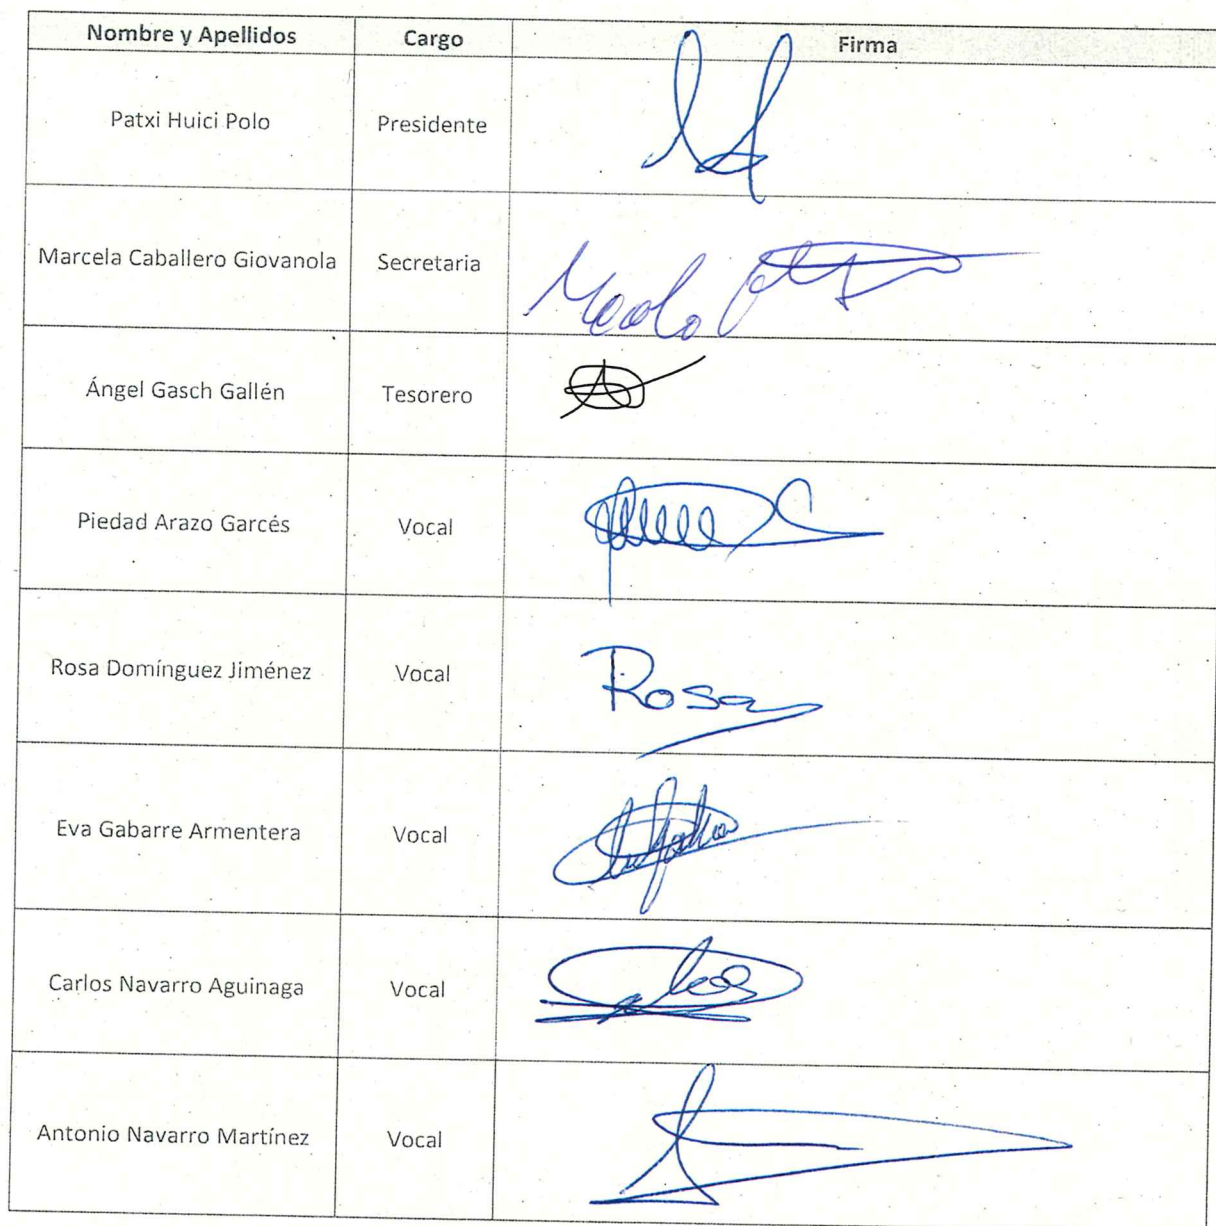 Nombre y Apellidos Cargo Firma
Patxi Huici Polo Presidente
Marcela Caballero Giovanola Secretaria
Ángel Gasch Gallén Tesorero
Piedad Arazo Garcés Vocal
Rosa Domínguez Jiménez Vocal Rosa
Eva Gabarre Armentera Vocal
Carlos Navarro Aguinaga Vocal
Antonio Navarro Martínez Vocal